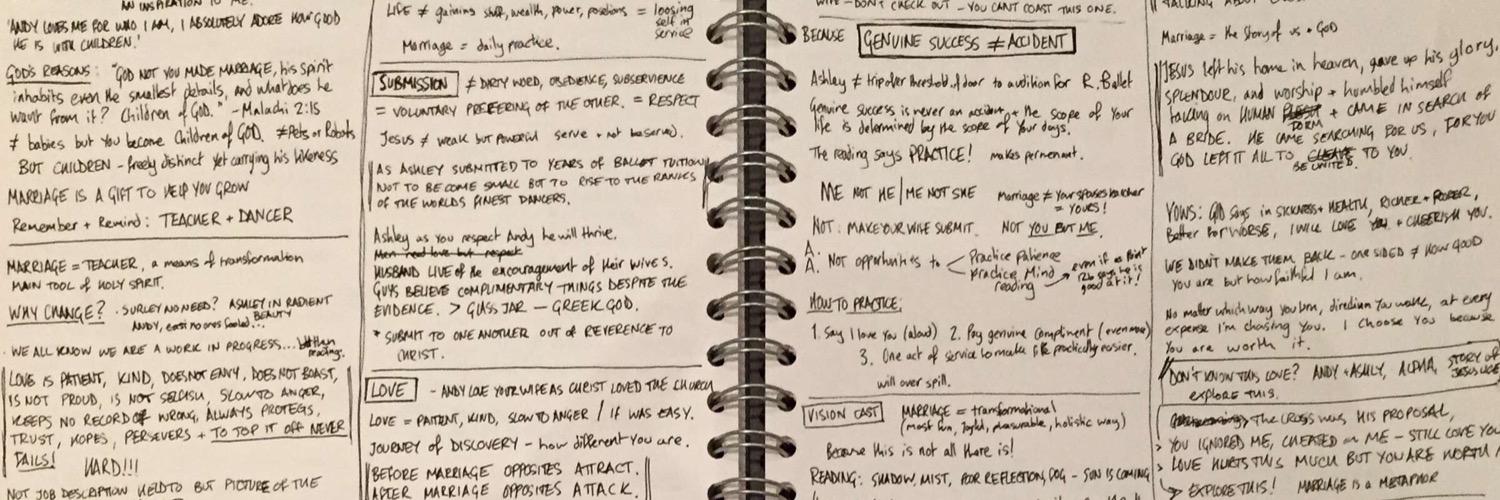 AN INSPIRATION TO ME.
"ANDY LOVES ME FOR WHO I AM, I ABSOLUTELY ADORE HOW GOOD
HE IS WITH CHILDREN."
GOD'S REASONS: "GOD NOT YOU MADE MARRIAGE, his spirit
inhabits even the smallest details, and what does he
want from it? Children of GOD." - Malachi 2:15
≠ babies but you become Children of GOD. ≠ Pets or Robots
BUT CHILDREN - freely distinct yet carrying his likeness
MARRIAGE IS A GIFT TO HELP YOU GROW
Remember + Remind: TEACHER + DANCER
MARRIAGE = TEACHER, a means of transformation
MAIN TOOL OF HOLY SPIRIT.
WHY CHANGE? . SURLEY NO NEED? ASHLEY IN RADIENT
BEAUTY
ANDY,
. WE ALL KNOW WE ARE A WORK IN PROGRESS...
LOVE IS PATIENT, KIND, DOES NOT ENVY, DOES NOT BOAST,
IS NOT PROUD, IS NOT SELFISH, SLOW TO ANGER,
KEEPS NO RECORD OF WRONG, ALWAYS PROTECTS,
TRUST, HOPES, PERSEVERS + TO TOP IT OFF NEVER
FAILS! HARD!!!
NOT JOB DESCRIPTION HELD TO BUT PICTURE OF THE
LIFE ≠ gaining stuff, wealth, power, positions = loosing
self in
service
Marriage = daily practice.
SUBMISSION ≠ DIRTY WORD, OBEDIENCE, SUBSERVIENCE
= VOLUNTARY PREFERING OF THE OTHER. = RESPECT
Jesus ≠ weak but powerful serve + not be served.
AS ASHLEY SUBMITTED TO YEARS OF BALLET TUITION
NOT TO BECOME SMALL BUT TO RISE TO THE RANKS
OF THE WORLDS FINEST DANCERS.
Ashley as you respect Andy he will thrive.
Men need love but respect
HUSBAND LIVE of the encouragement of their WIVES.
GUYS BELIEVE COMPLIMENTARY THINGS DESPITE THE
EVIDENCE. > GLASS JAR - GREEK GOD.
* SUBMIT TO ONE ANOTHER OUT OF REVERENCE TO
CHRIST.
LOVE - ANDY LOVE YOUR WIFE AS CHRIST LOVED THE CHURCH
LOVE = PATIENT, KIND, SLOW TO ANGER / IF WAS EASY.
JOURNEY OF DISCOVERY - how different you are.
BEFORE MARRIAGE OPPOSITES ATTRACT.
AFTER MARRIAGE OPPOSITES ATTACK.
WIFE - DON'T CHECK OUT - YOU CANT COAST THIS ONE.
BECAUSE GENUINE SUCCESS ≠ ACCIDENT
Ashley ≠ trip over threshold of door to audition for R. Ballet
Genuine success is never an accident + the scope of your
life is determined by the scope of your days.
The reading says PRACTICE! makes permenant.
ME NOT HE / ME NOT SHE Marriage ≠ Your spouses teacher
= YOURS!
NOT: MAKE YOUR WIFE SUBMIT. NOT YOU BUT ME.
A.
A. NOT opportunities to < Practice Patience
Practice Mind reading
good at it!
HOW TO PRACTICE:
1. Say I love you (aloud) 2. Pay genuine compliment (even more)
3. One act of service to make life practically easier.
will over spill.
VISION CAST MARRIAGE = transformational
(most fun, joyful, pleasurable, holistic way)
Because this is not all there is!
READING: SHADOW, MIST, POOR REFLECTION, DOG - SON IS COMING
TALKING ABOUT
Marriage = the story of us + GOD
JESUS left his home in heaven, gave up his glory,
SPLENDOUR, and worship + humbled himself
taking on HUMAN FLESH + CAME IN SEARCH OF
FORM
A BRIDE. HE CAME SEARCHING FOR US, FOR YOU
GOD LEFT IT ALL TO CLEAVE TO YOU.
BE UNITED
VOWS: GOD says in SICKNESS + HEALTH, RICHER + POORER,
Better for WORSE, I WILL LOVE YOU + CHERRISH YOU.
WE DIDN'T MAKE THEM BACK - ONE SIDED ≠ HOW GOOD
You are but how faithful I am.
No matter which way you turn, direction you walk, at every
expense I'm chasing you. I choose you because
You are worth it.
DON'T KNOW THIS LOVE? ANDY + ASHLY, ALPHA, STORY OF
explore THIS.
The CROSS was HIS PROPOSAL,
> YOU IGNORED ME, CHEATED on ME - STILL LOVE YOU
> LOVE HURTS THIS MUCH BUT YOU ARE WORTH
EXPLORE THIS! MARRIAGE IS A METAPHOR